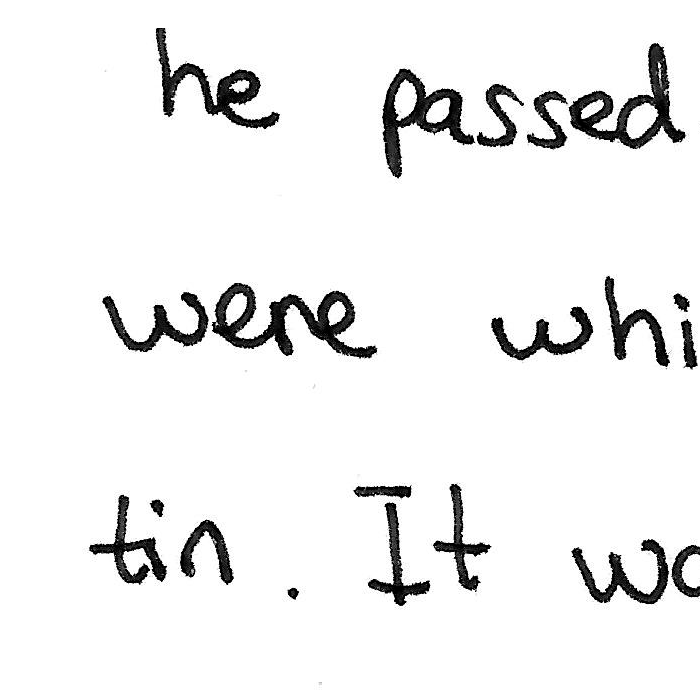 he passed
were whi
tin. It wo